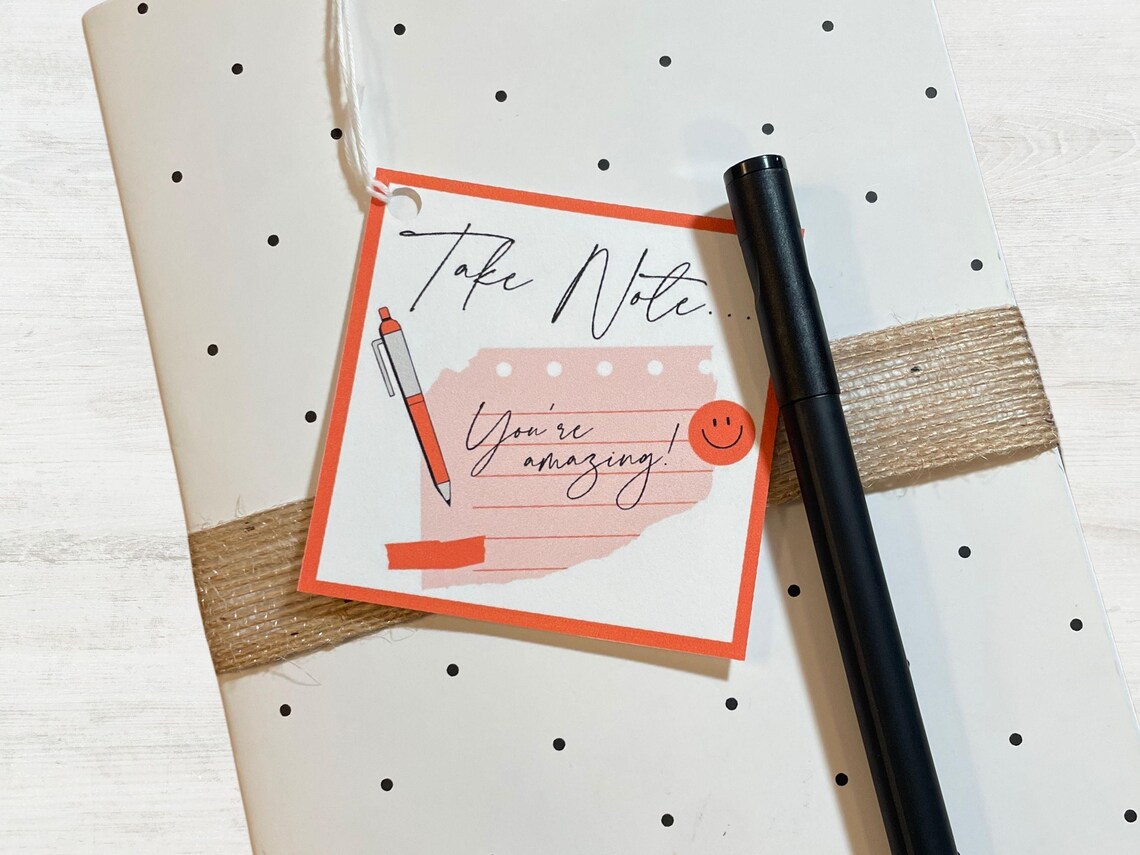 Take Note...
You're
amazing!